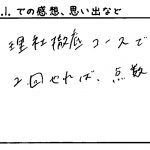 .1. での感想、思い出など
理社徹底コースで
2回せれば、点数